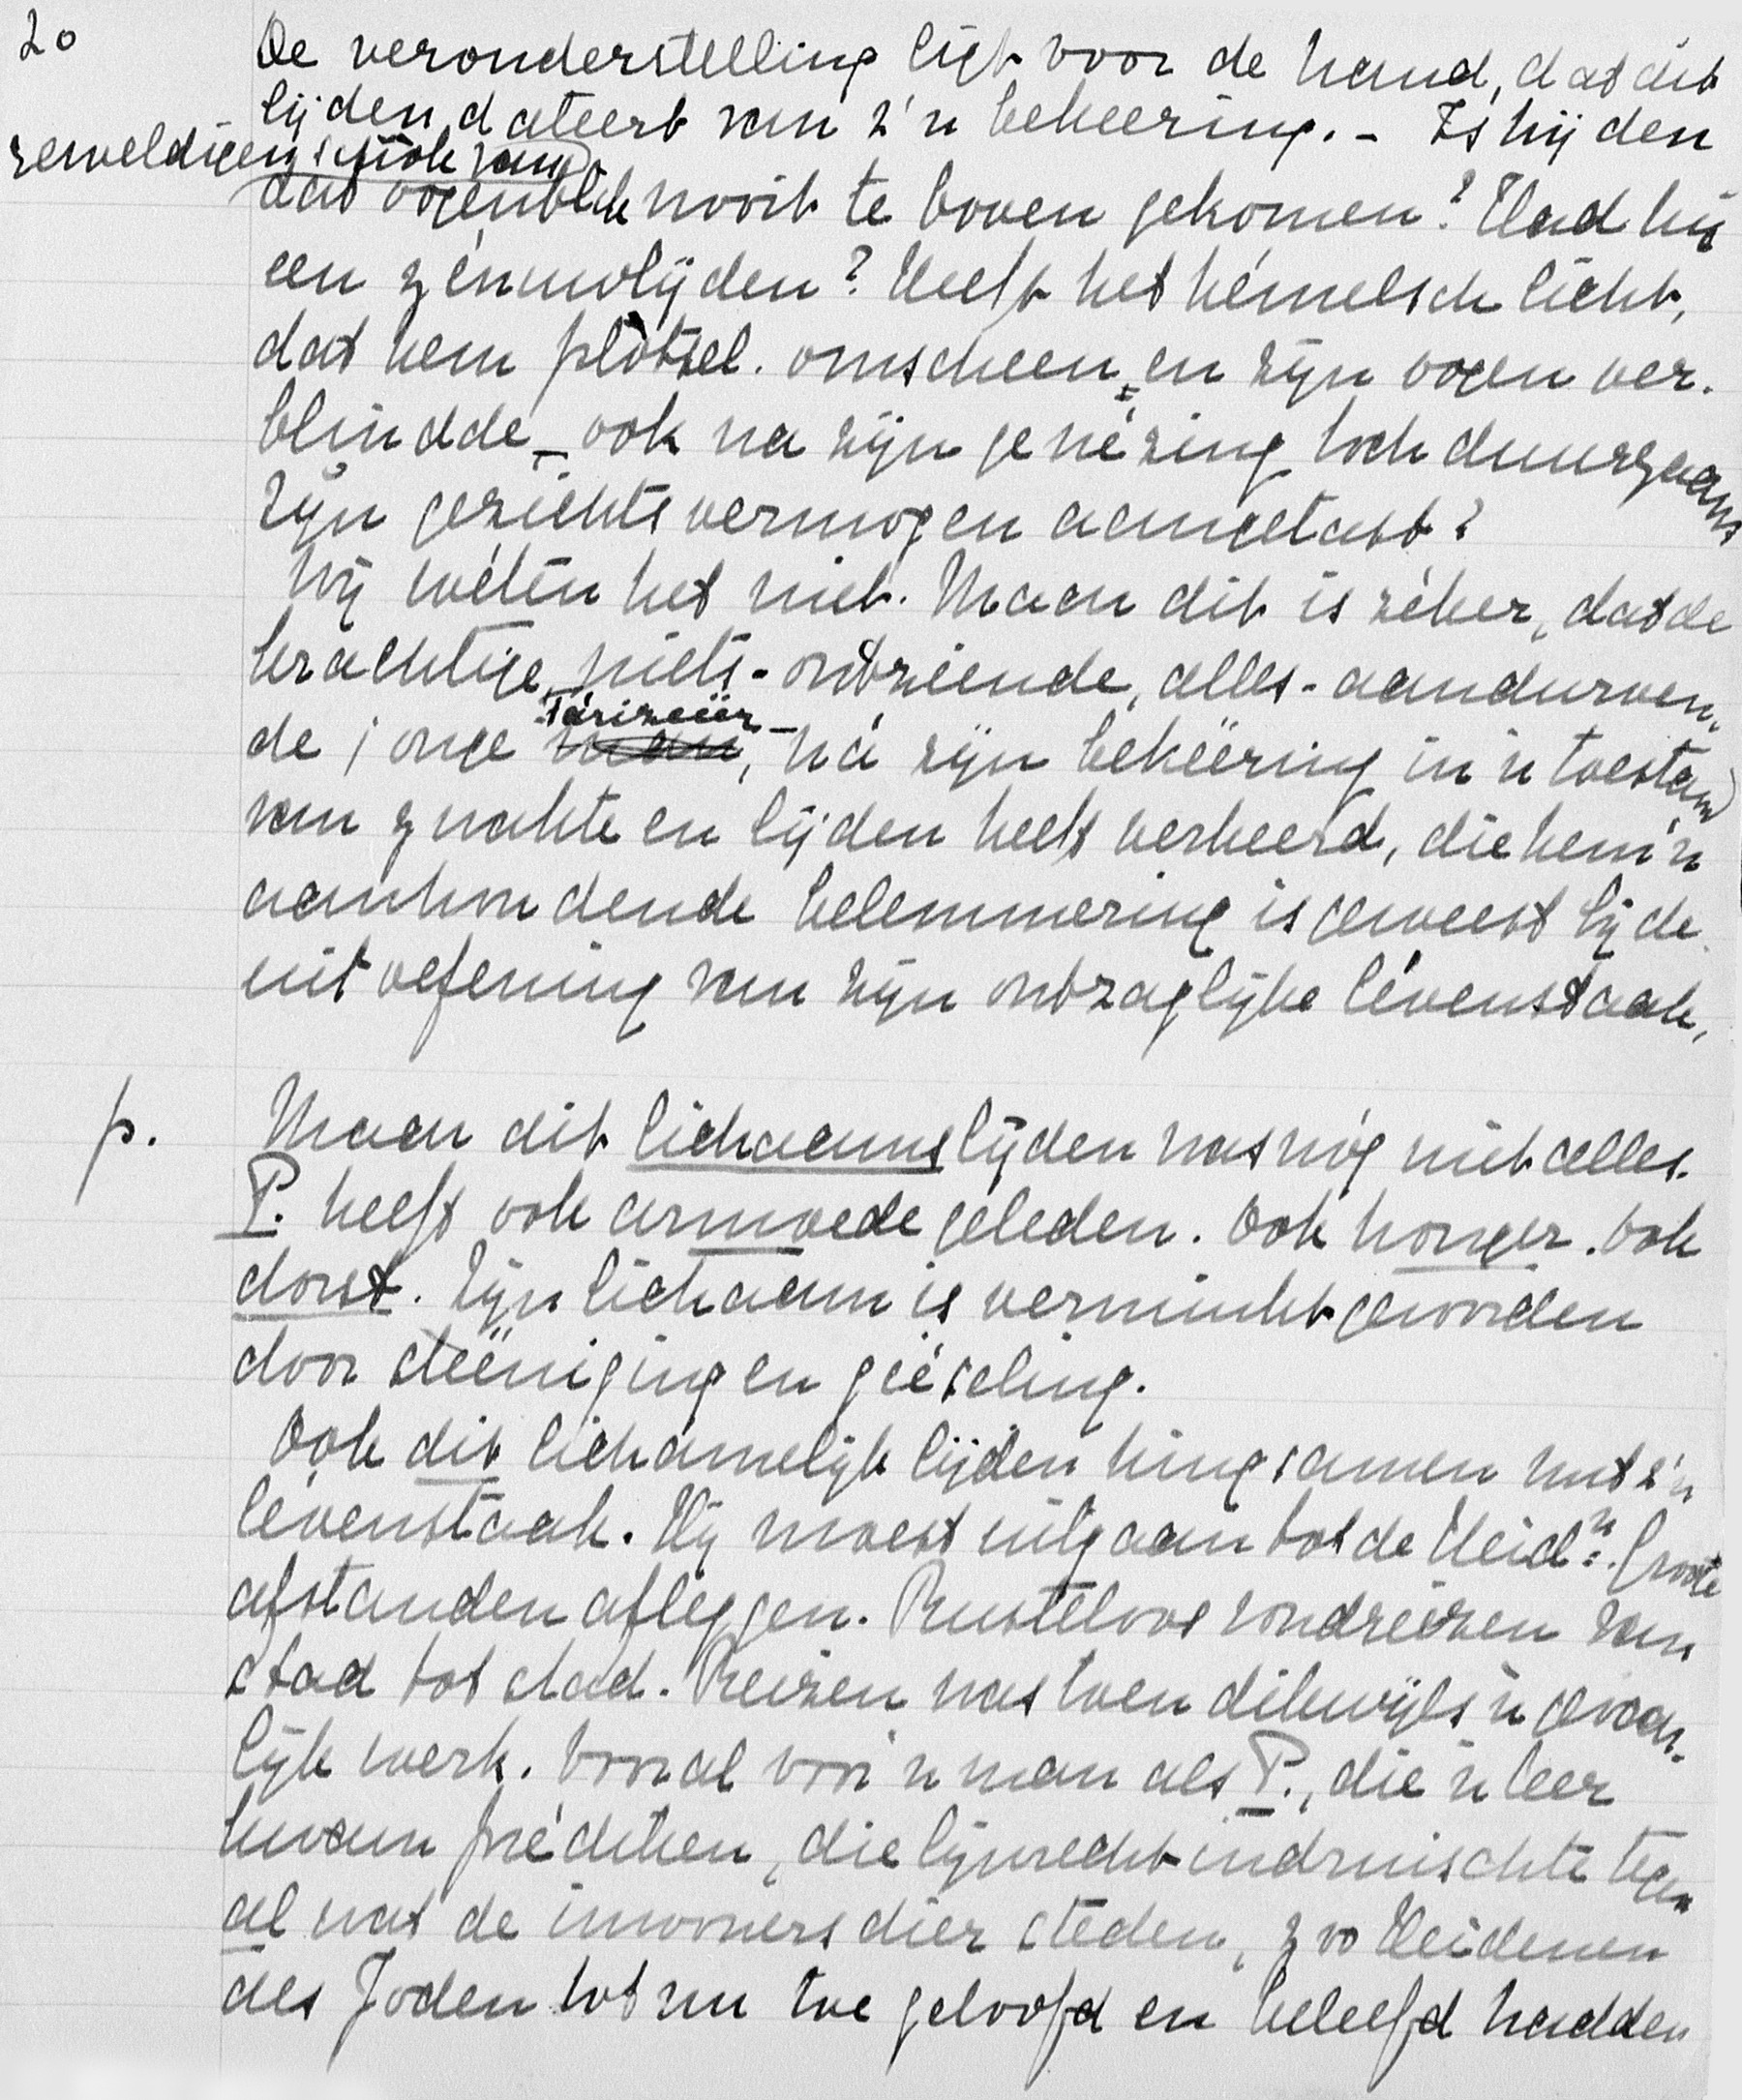 20
De veronderstelling ligt voor de hand, dat dit
lijden dateert van z'n bekeering. - Is hij den
geweldigen schok van
dat oogenblik nooit te boven gekomen? Had hij
een zénuwlijden? Heeft het hémelsch licht,
dat hem plòtsel. omscheen en zijn oogen ver-
blindde - ook na zijn genézing toch duurzaam
zijn gezichtsvermogen aangetast?
Wij wéten het niet. Maar dit is zéker, dat de
krachtige, niets-ontziende, alles-aandurven-
de jonge Farizeeër, ná zijn bekéering in 'n toestand
van zwakte en lijden heeft verkeerd, die hem 'n
aanhoudende belemmering is geweest bij de
uitoefening van zijn ontzaglijke lévenstaak.
p. Maar dit lichaamslijden was nóg niet alles.
P. heeft ook armoede geleden. Ook honger. Ook
dorst. Zijn lichaam is verminkt geworden
door stéeniging en géeseling.
Ook dit lichámelijk lijden hing samen met z'n
lévenstaak. Hij moest uitgaan tot de Heidn. Groote
afstanden afleggen. Rusteloos rondreizen van
stad tot stad. Reizen was toen dikwijls 'n gevaar-
lijk werk. Vooral voor 'n man als P., die 'n leer
kwam prédiken, die lijnrecht indruischte tegen
al wat de inwoners dier steden, zoo Heidenen
als Joden tot nu toe geloofd en beleefd hadden